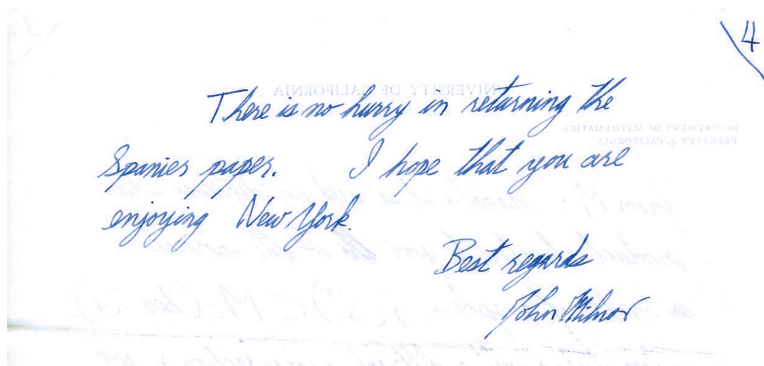 4
There is no hurry in returning the
Spanier paper. I hope that you are
enjoying New York.
Best regards
John Milnor